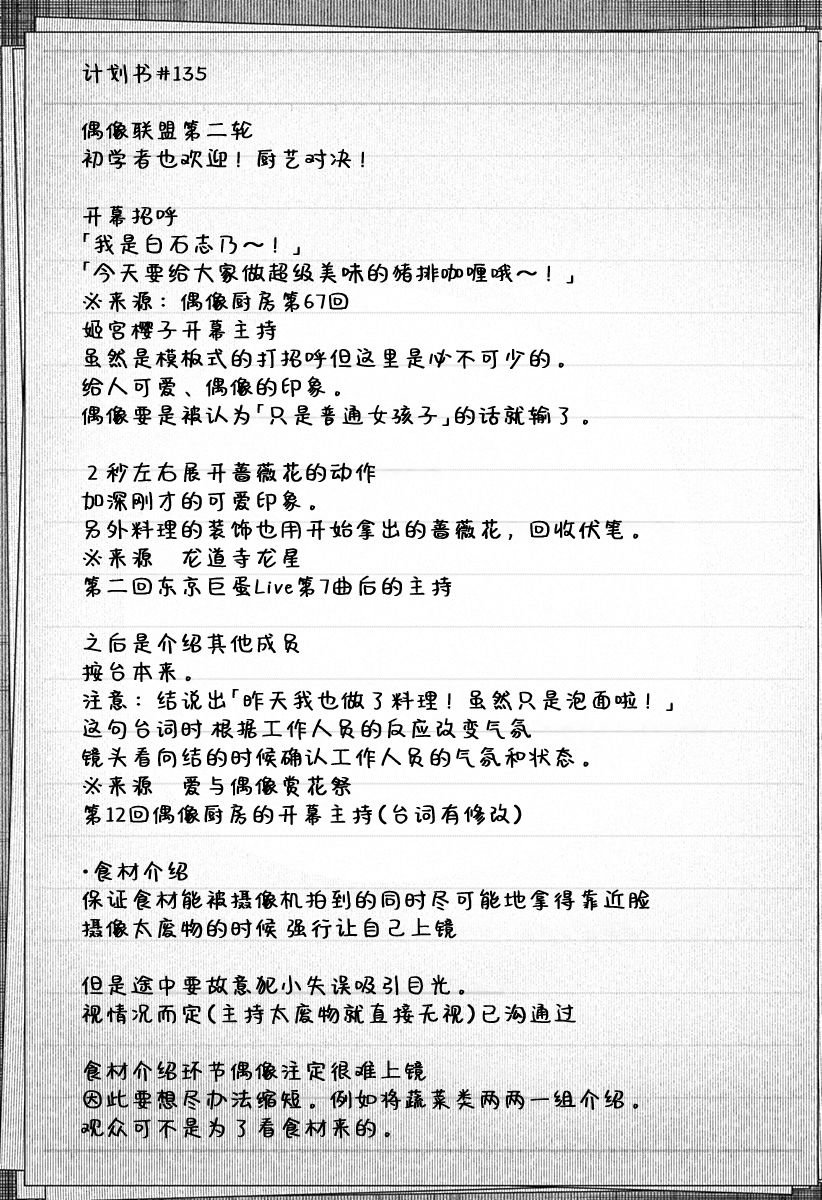 计划书#135
偶像联盟第二轮
初学者也欢迎！厨艺对决！
开幕招呼
「我是白石志乃～！」
「今天要给大家做超级美味的猪排咖喱哦～！」
※来源：偶像厨房第67回
姬宫樱子开幕主持
虽然是模板式的打招呼但这里是必不可少的。
给人可爱、偶像的印象。
偶像要是被认为「只是普通女孩子」的话就输了。
2秒左右展开蔷薇花的动作
加深刚才的可爱印象。
另外料理的装饰也用开始拿出的蔷薇花，回收伏笔。
※来源 龙道寺龙星
第二回东京巨蛋Live第7曲后的主持
之后是介绍其他成员
按台本来。
注意：结说出「昨天我也做了料理！虽然只是泡面啦！」
这句台词时 根据工作人员的反应改变气氛
镜头看向结的时候确认工作人员的气氛和状态。
※来源 爱与偶像赏花祭
第12回偶像厨房的开幕主持(台词有修改)
·食材介绍
保证食材能被摄像机拍到的同时尽可能地拿得靠近脸
摄像太废物的时候 强行让自己上镜
但是途中要故意犯小失误吸引目光。
视情况而定(主持太废物就直接无视)已沟通过
食材介绍环节偶像注定很难上镜
因此要想尽办法缩短。例如将蔬菜类两两一组介绍。
观众可不是为了看食材来的。